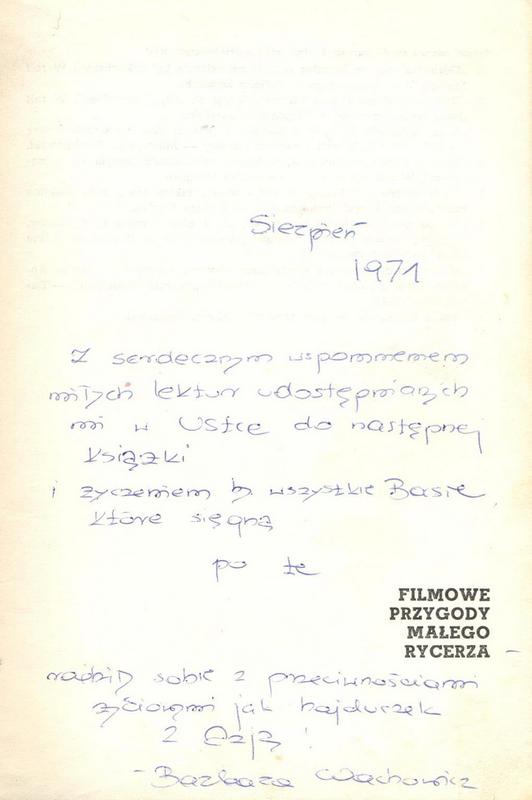 Sierpień
1971
Z serdecznym wspomnieniem
miłych lektur udostępnianych
mi w Ustce do następnej
książki
i życzeniem by wszystkie Basie
które sięgną
po te
FILMOWE
PRZYGODY
MAŁEGO
RYCERZA
radziły sobie z przeciwnościami
życiowymi jak hajduczek
z Azją!
- Barbara Wachowicz